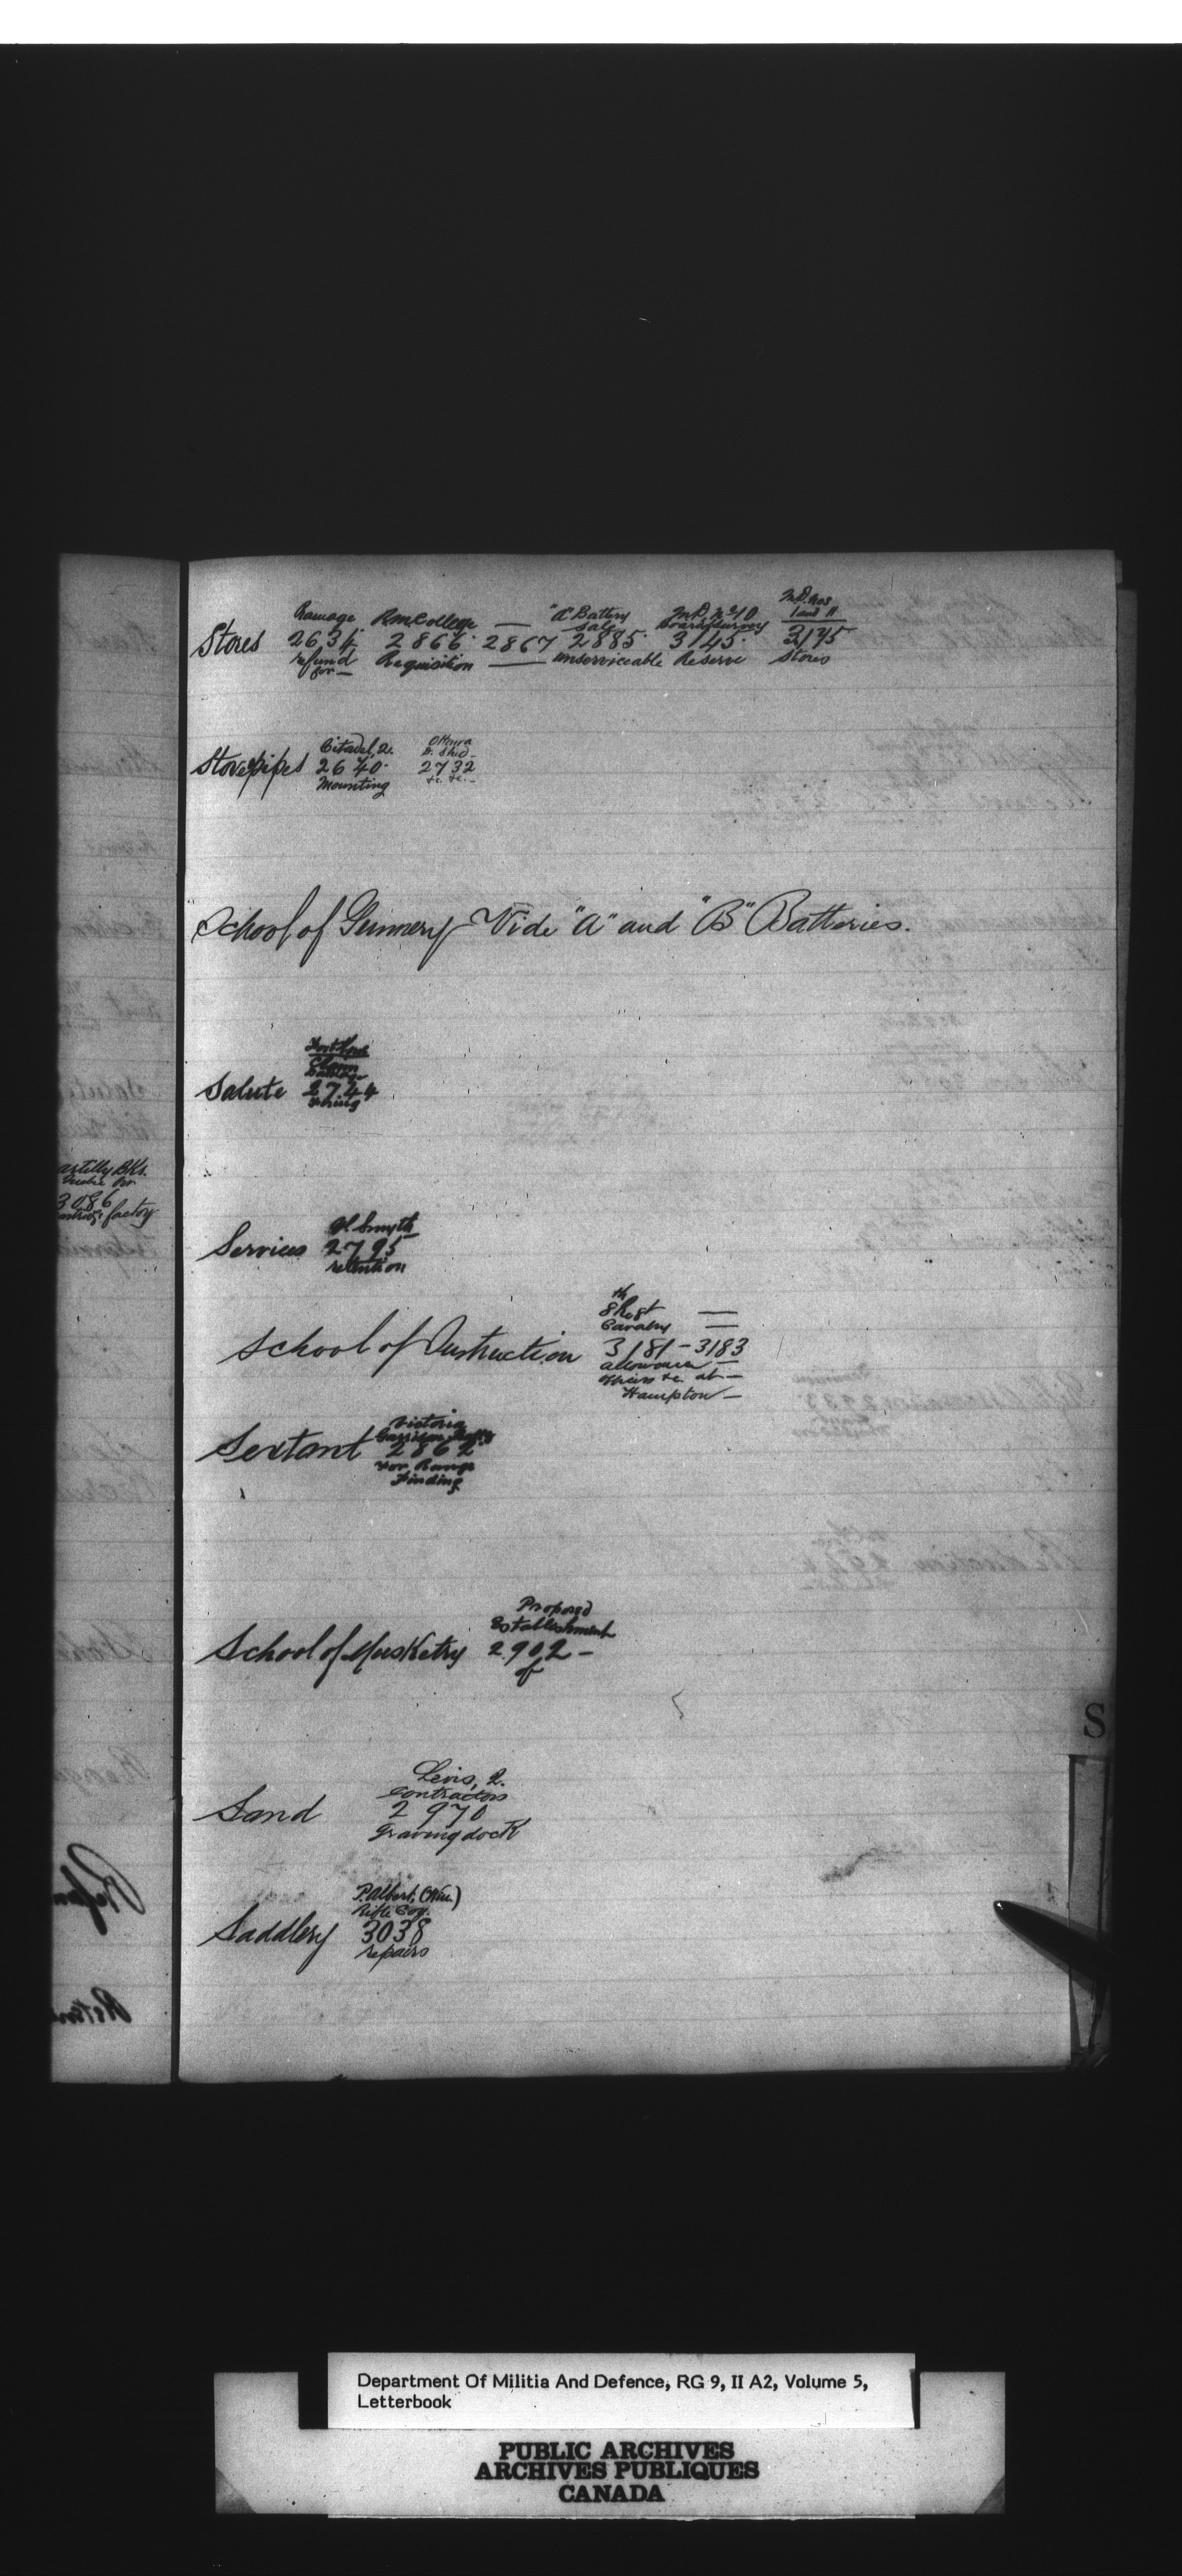 Ramage RMCollege — "A" Battery M.D. No 10 M.D. Nos
Sale Board of Survey 1 and 11
Stores 2634. 2866. 2867 2885. 3145. 3175
refund Requisition — unserviceable Reserve Stores
for —
Citadel, Q. Ottawa
D. Shed
Stovepipes 2640. 2732
Mounting &c. &c. —
School of Gunnery Vide "A" and "B" Batteries.
Salute 2744
Firing
Smyth
Services 2795
retention
8th Regt —
Cavalry —
School of Instruction 3181 - 3183
allowance —
&c. at —
Hampton —
Victoria
Garrison
Sextant 2862
For Range
Finding
Proposed
Establishment
School of Musketry 2902 —
of
Levis, Q.
Contractors
Sand 2970
Graving dock
P. Albert,
Rifle Coy.
Saddlery 3038
repairs
3086
factory
S
Department Of Militia And Defence, RG 9, II A2, Volume 5,
Letterbook
PUBLIC ARCHIVES
ARCHIVES PUBLIQUES
CANADA